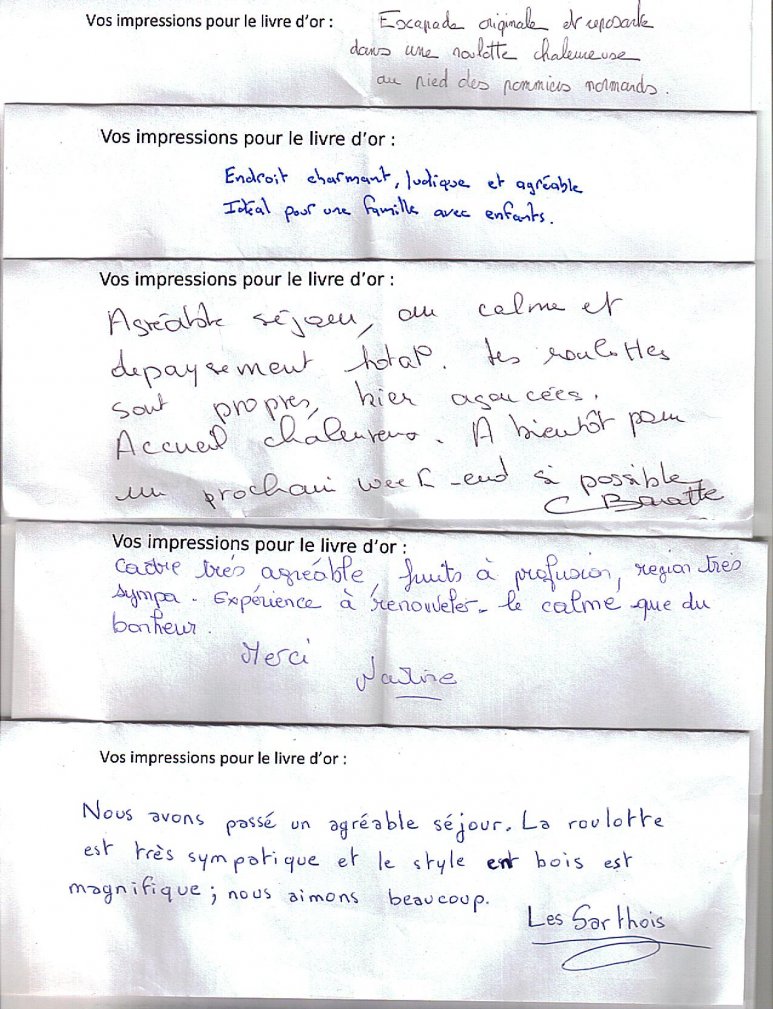 Vos impressions pour le livre d'or : Escapade originale et reposante
dans une roulotte chaleureuse
au pied des pommiers normands.
Vos impressions pour le livre d'or :
Endroit charmant, ludique et agréable
Idéal pour une famille avec enfants.
Vos impressions pour le livre d'or :
Agréable séjour, au calme et
depaysement total. Les roulottes
sont propres, bien agencées.
Accueil chaleureux. A bientôt pour
un prochain week-end si possible
C Baratte
Vos impressions pour le livre d'or :
Cadre très agréable, fruits à profusion, region très
sympa. Expérience à renouveler - le calme que du
bonheur.
Merci
Vos impressions pour le livre d'or :
Nous avons passé un agréable séjour. La roulotte
est très sympatique et le style en bois est
magnifique ; nous aimons beaucoup.
Les Sarthois